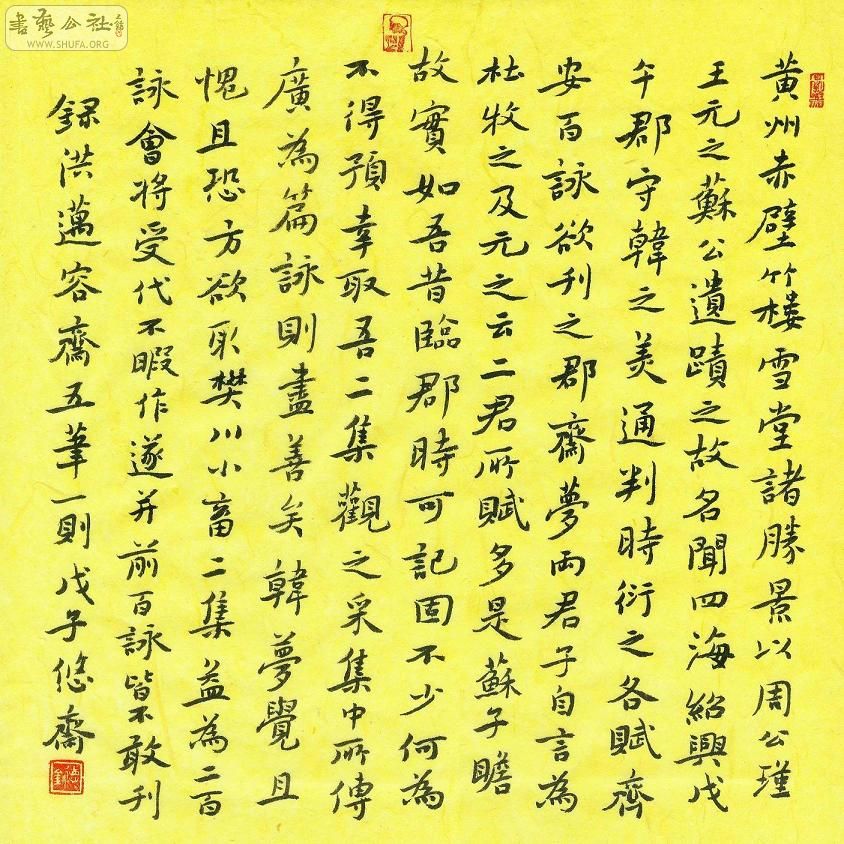 黄州赤壁竹楼雪堂諸勝景以周公瑾
王元之蘇公遺蹟之故名聞四海紹興戊
午郡守韓之美通判時衍之各賦齊
安百詠欲刊之郡齋夢両君子自言為
杜牧之及元之云二君所賦多是蘇子瞻
故實如吾昔臨郡時可記固不少何為
不得預幸取吾二集觀之采集中所傳
廣為篇詠則盡善矣韓夢覺且
愧且恐方欲取樊川小畜二集益為二百
詠會將受代不暇作遂并前百詠皆不敢刊
録洪邁容齋五筆一則戊子悠齋
書藝公社
WWW.SHUFA.ORG